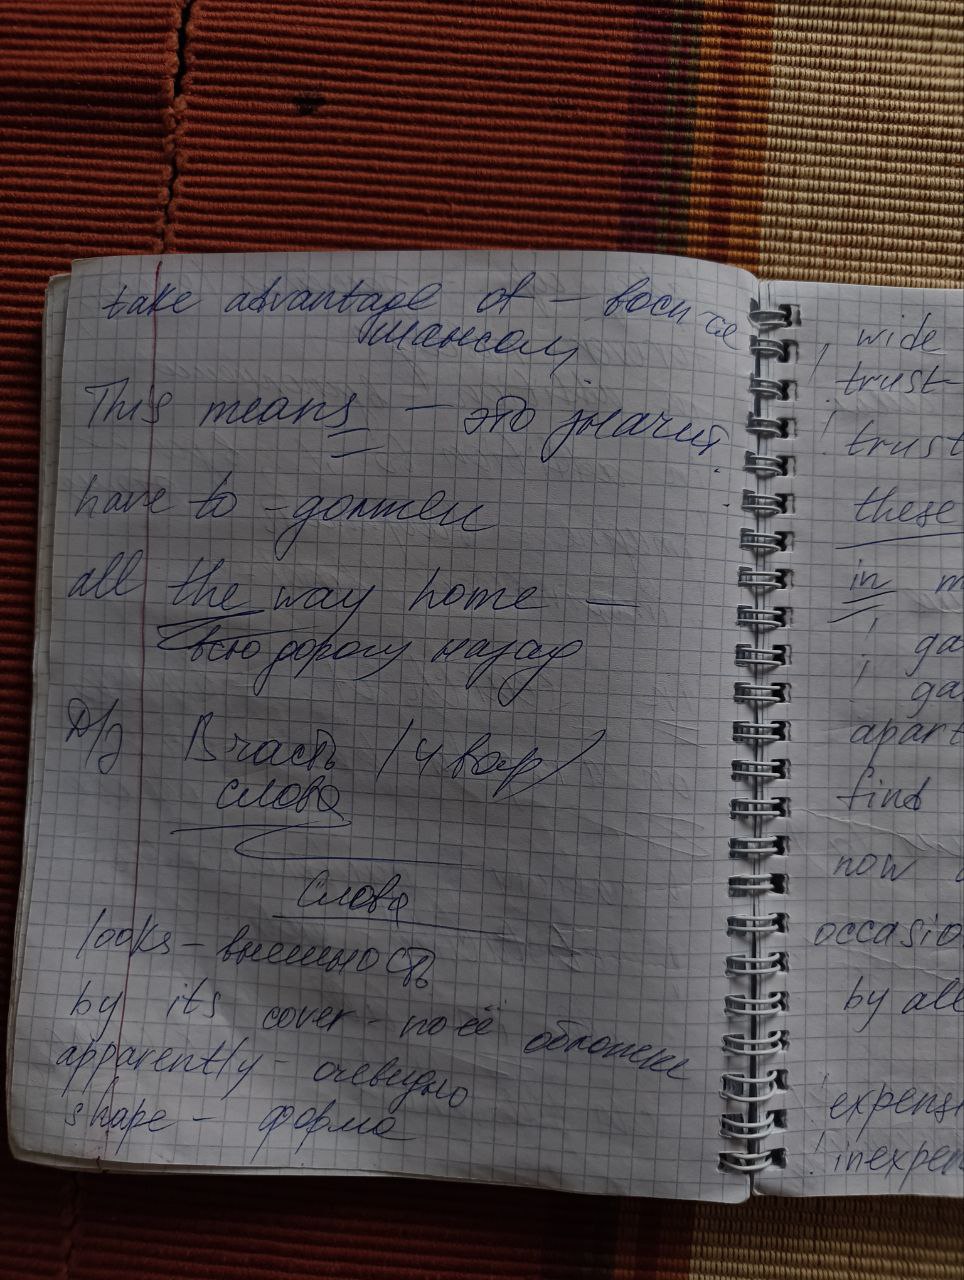 take advantage of - восп-ся
шансом
This means - это значит
have to - должен
all the way home -
всю дорогу назад
Д/з В часть (4 вар)
слова
Слова
looks - внешность
by its cover - по её обложке
apparently - очевидно
shape - форма
wide
! trust
! trust
these
in m
! ga
! ga
apart
find
now
occasio
by all
! expensi
! inexpen